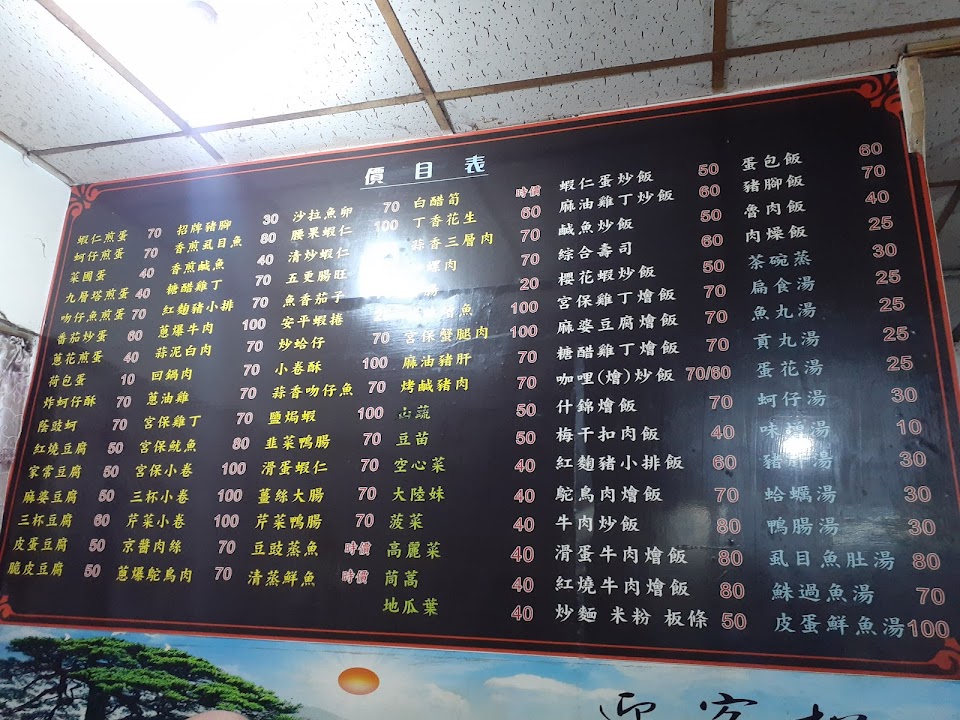 價目表
蝦仁煎蛋 70
蚵仔煎蛋 70
菜圃蛋 40
九層塔煎蛋 40
吻仔魚煎蛋 70
番茄炒蛋 60
蔥花煎蛋 40
荷包蛋 10
炸蚵仔酥 70
蔭豉蚵 70
紅燒豆腐 50
家常豆腐 50
麻婆豆腐 50
三杯豆腐 60
皮蛋豆腐 50
脆皮豆腐 50
招牌豬腳 30
香煎虱目魚 80
香煎鹹魚 40
糖醋雞丁 70
紅麴豬小排 70
蔥爆牛肉 100
蒜泥白肉 70
回鍋肉 70
蔥油雞 70
宮保雞丁 70
宮保魷魚 80
宮保小卷 100
三杯小卷 100
芹菜小卷 100
京醬肉絲 70
蔥爆鴕鳥肉 70
沙拉魚卵 70
腰果蝦仁 100
清炒蝦仁
五更腸旺
魚香茄子
安平蝦捲
炒蛤仔
小卷酥 100
蒜香吻仔魚 70
鹽焗蝦 100
韭菜鴨腸 70
滑蛋蝦仁 70
薑絲大腸 70
芹菜鴨腸 70
豆豉蒸魚 時價
清蒸鮮魚 時價
白醋筍 時價
丁香花生 60
蒜香三層肉 70
螺肉 70
20
魚 100
宮保蟹腿肉 100
麻油豬肝 70
烤鹹豬肉 70
山蔬 50
豆苗 50
空心菜 40
大陸妹 40
菠菜 40
高麗菜 40
茼蒿 40
地瓜葉 40
蝦仁蛋炒飯 50
麻油雞丁炒飯 60
鹹魚炒飯 50
綜合壽司 60
櫻花蝦炒飯 50
宮保雞丁燴飯 70
麻婆豆腐燴飯 70
糖醋雞丁燴飯 70
咖哩(燴)炒飯 70/60
什錦燴飯 70
梅干扣肉飯 40
紅麴豬小排飯 60
鴕鳥肉燴飯 70
牛肉炒飯 80
滑蛋牛肉燴飯 80
紅燒牛肉燴飯 80
炒麵 米粉 板條 50
蛋包飯 60
豬腳飯 70
魯肉飯 40
肉燥飯 25
茶碗蒸 30
扁食湯 25
魚丸湯 25
貢丸湯 25
蛋花湯 25
蚵仔湯 30
味湯 10
豬湯 30
蛤蠣湯 30
鴨腸湯 30
虱目魚肚湯 80
鮢過魚湯 70
皮蛋鮮魚湯 100
迎客